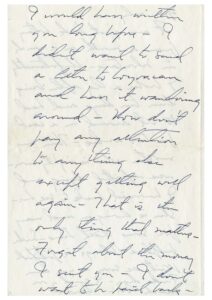 I would have written
you long before - I
didn't want to send
a letter to
and have it wandering
around - Now don't
pay any attention
to anything else
except getting well
again - That is the
only thing that matters -
Forget about the money
I sent you - I don't
want to be paid back -